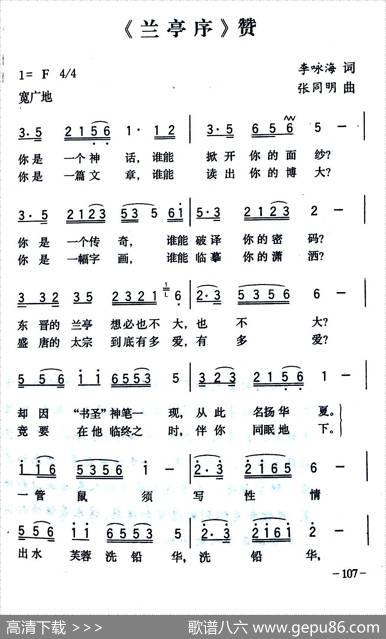 《兰亭序》赞
1= F 4/4
李咏海 词
宽广地
张同明 曲
3·5 2156 1·12 | 6·1 656 5 -
你是 一个神 话，谁能 掀开 你的面 纱？
你是 一篇文 章，谁能 读出 你的博 大？
3·5 2123 535 6i | 5·3 2123 2 -
你是 一个传 奇，谁能破译 你的密 码？
你是 一幅字 画，谁能临摹 你的潇 洒？
3 332 3235 2321 6 | 2·3 5356 6 -
东 晋的 兰亭 想必也不 大，也 不 大？
盛 唐的 太宗 到底有多 爱，有 多 爱？
556 ii 6553 5 | 5·5 2126 1 -
却因 “书圣”神笔一 现，从此 名扬华 夏。
竟要 在他临终之 时，伴你 同眠地 下。
ii6 5356 i - | 2·3 2i65 6 -
一管 鼠 须 写 性 情
556 ii 6553 5 | 2·3 2i26 i -
出水 芙蓉 洗铅 华， 洗 铅 华，
－107－
高清下载 >>>
歌谱八六 www.gepu86.com